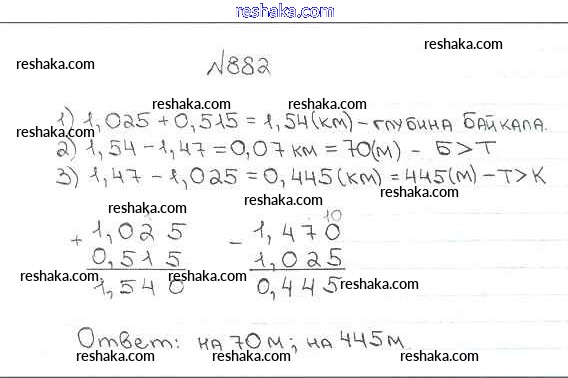 reshaka.com
reshaka.com
№882
reshaka.com reshaka.com
reshaka.com
1) 1,025 + 0,515 = 1,54(км) - глубина Байкала.
reshaka.com reshaka.com
2) 1,54 - 1,47 = 0,07 км = 70(м) - Б > Т
reshaka.com reshaka.com
3) 1,47 - 1,025 = 0,445(км) = 445(м) - Т > К
reshaka.com reshaka.com
reshaka.com
10
+ 1,025 - 1,470
0,515 1,025
reshaka.com reshaka.com
1,540 0,445
reshaka.com
Ответ: на 70м; на 445м
reshaka.com reshaka.com reshaka.com